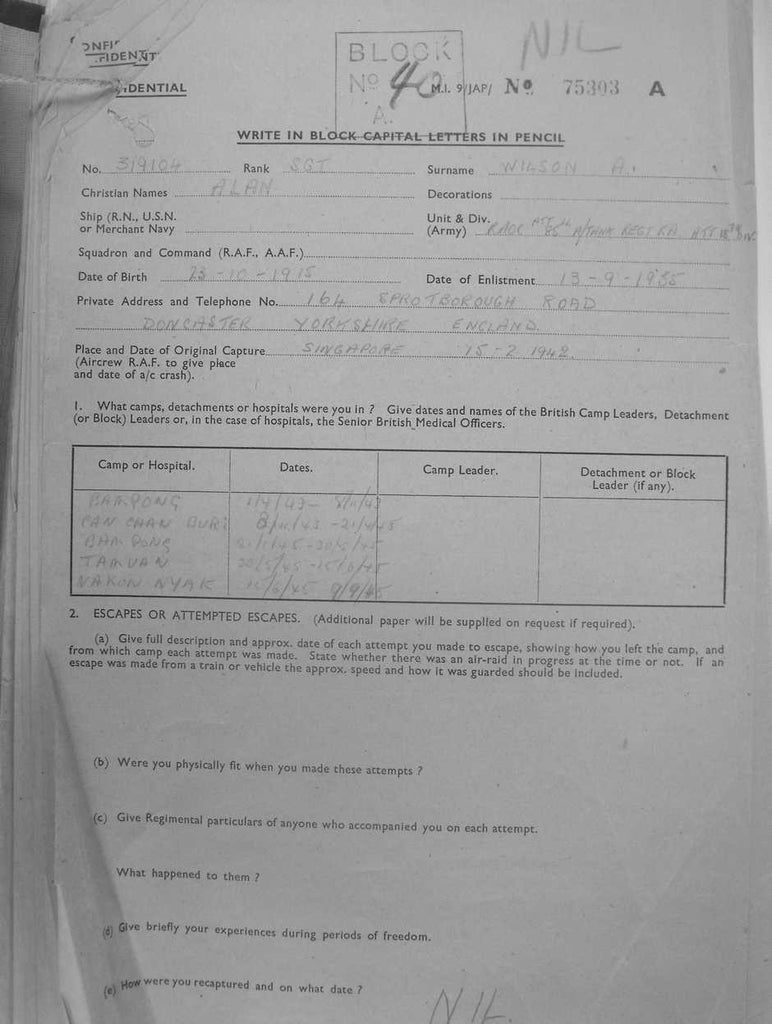 CONFIDENTIAL
BLOCK
No 40
A.
NIL
M.I. 9/JAP/ No 75303 A
WRITE IN BLOCK CAPITAL LETTERS IN PENCIL
No. 319104 Rank SGT Surname WILSON A.
Christian Names ALAN Decorations
Ship (R.N., U.S.N. or Merchant Navy
Unit & Div. (Army) RAOC ATT 85th A/TANK REGT RA. ATT 18th DIV.
Squadron and Command (R.A.F., A.A.F.)
Date of Birth 23-10-1915 Date of Enlistment 13-9-1935
Private Address and Telephone No. 164 SPROTBOROUGH ROAD
DONCASTER YORKSHIRE ENGLAND.
Place and Date of Original Capture SINGAPORE 15-2 1942.
(Aircrew R.A.F. to give place
and date of a/c crash).
1. What camps, detachments or hospitals were you in ? Give dates and names of the British Camp Leaders, Detachment
(or Block) Leaders or, in the case of hospitals, the Senior British Medical Officers.
Camp or Hospital. Dates. Camp Leader. Detachment or Block Leader (if any).
BAMPONG
CAN CHAN BURI
BAM PONG
TAMUAN 20/5/45 - 15/6/45
NAKON NYAK 15/6/45 9/9/45
2. ESCAPES OR ATTEMPTED ESCAPES. (Additional paper will be supplied on request if required).
(a) Give full description and approx. date of each attempt you made to escape, showing how you left the camp, and
from which camp each attempt was made. State whether there was an air-raid in progress at the time or not. If an
escape was made from a train or vehicle the approx. speed and how it was guarded should be included.
(b) Were you physically fit when you made these attempts ?
(c) Give Regimental particulars of anyone who accompanied you on each attempt.
What happened to them ?
(d) Give briefly your experiences during periods of freedom.
(e) How were you recaptured and on what date ?
NIL.